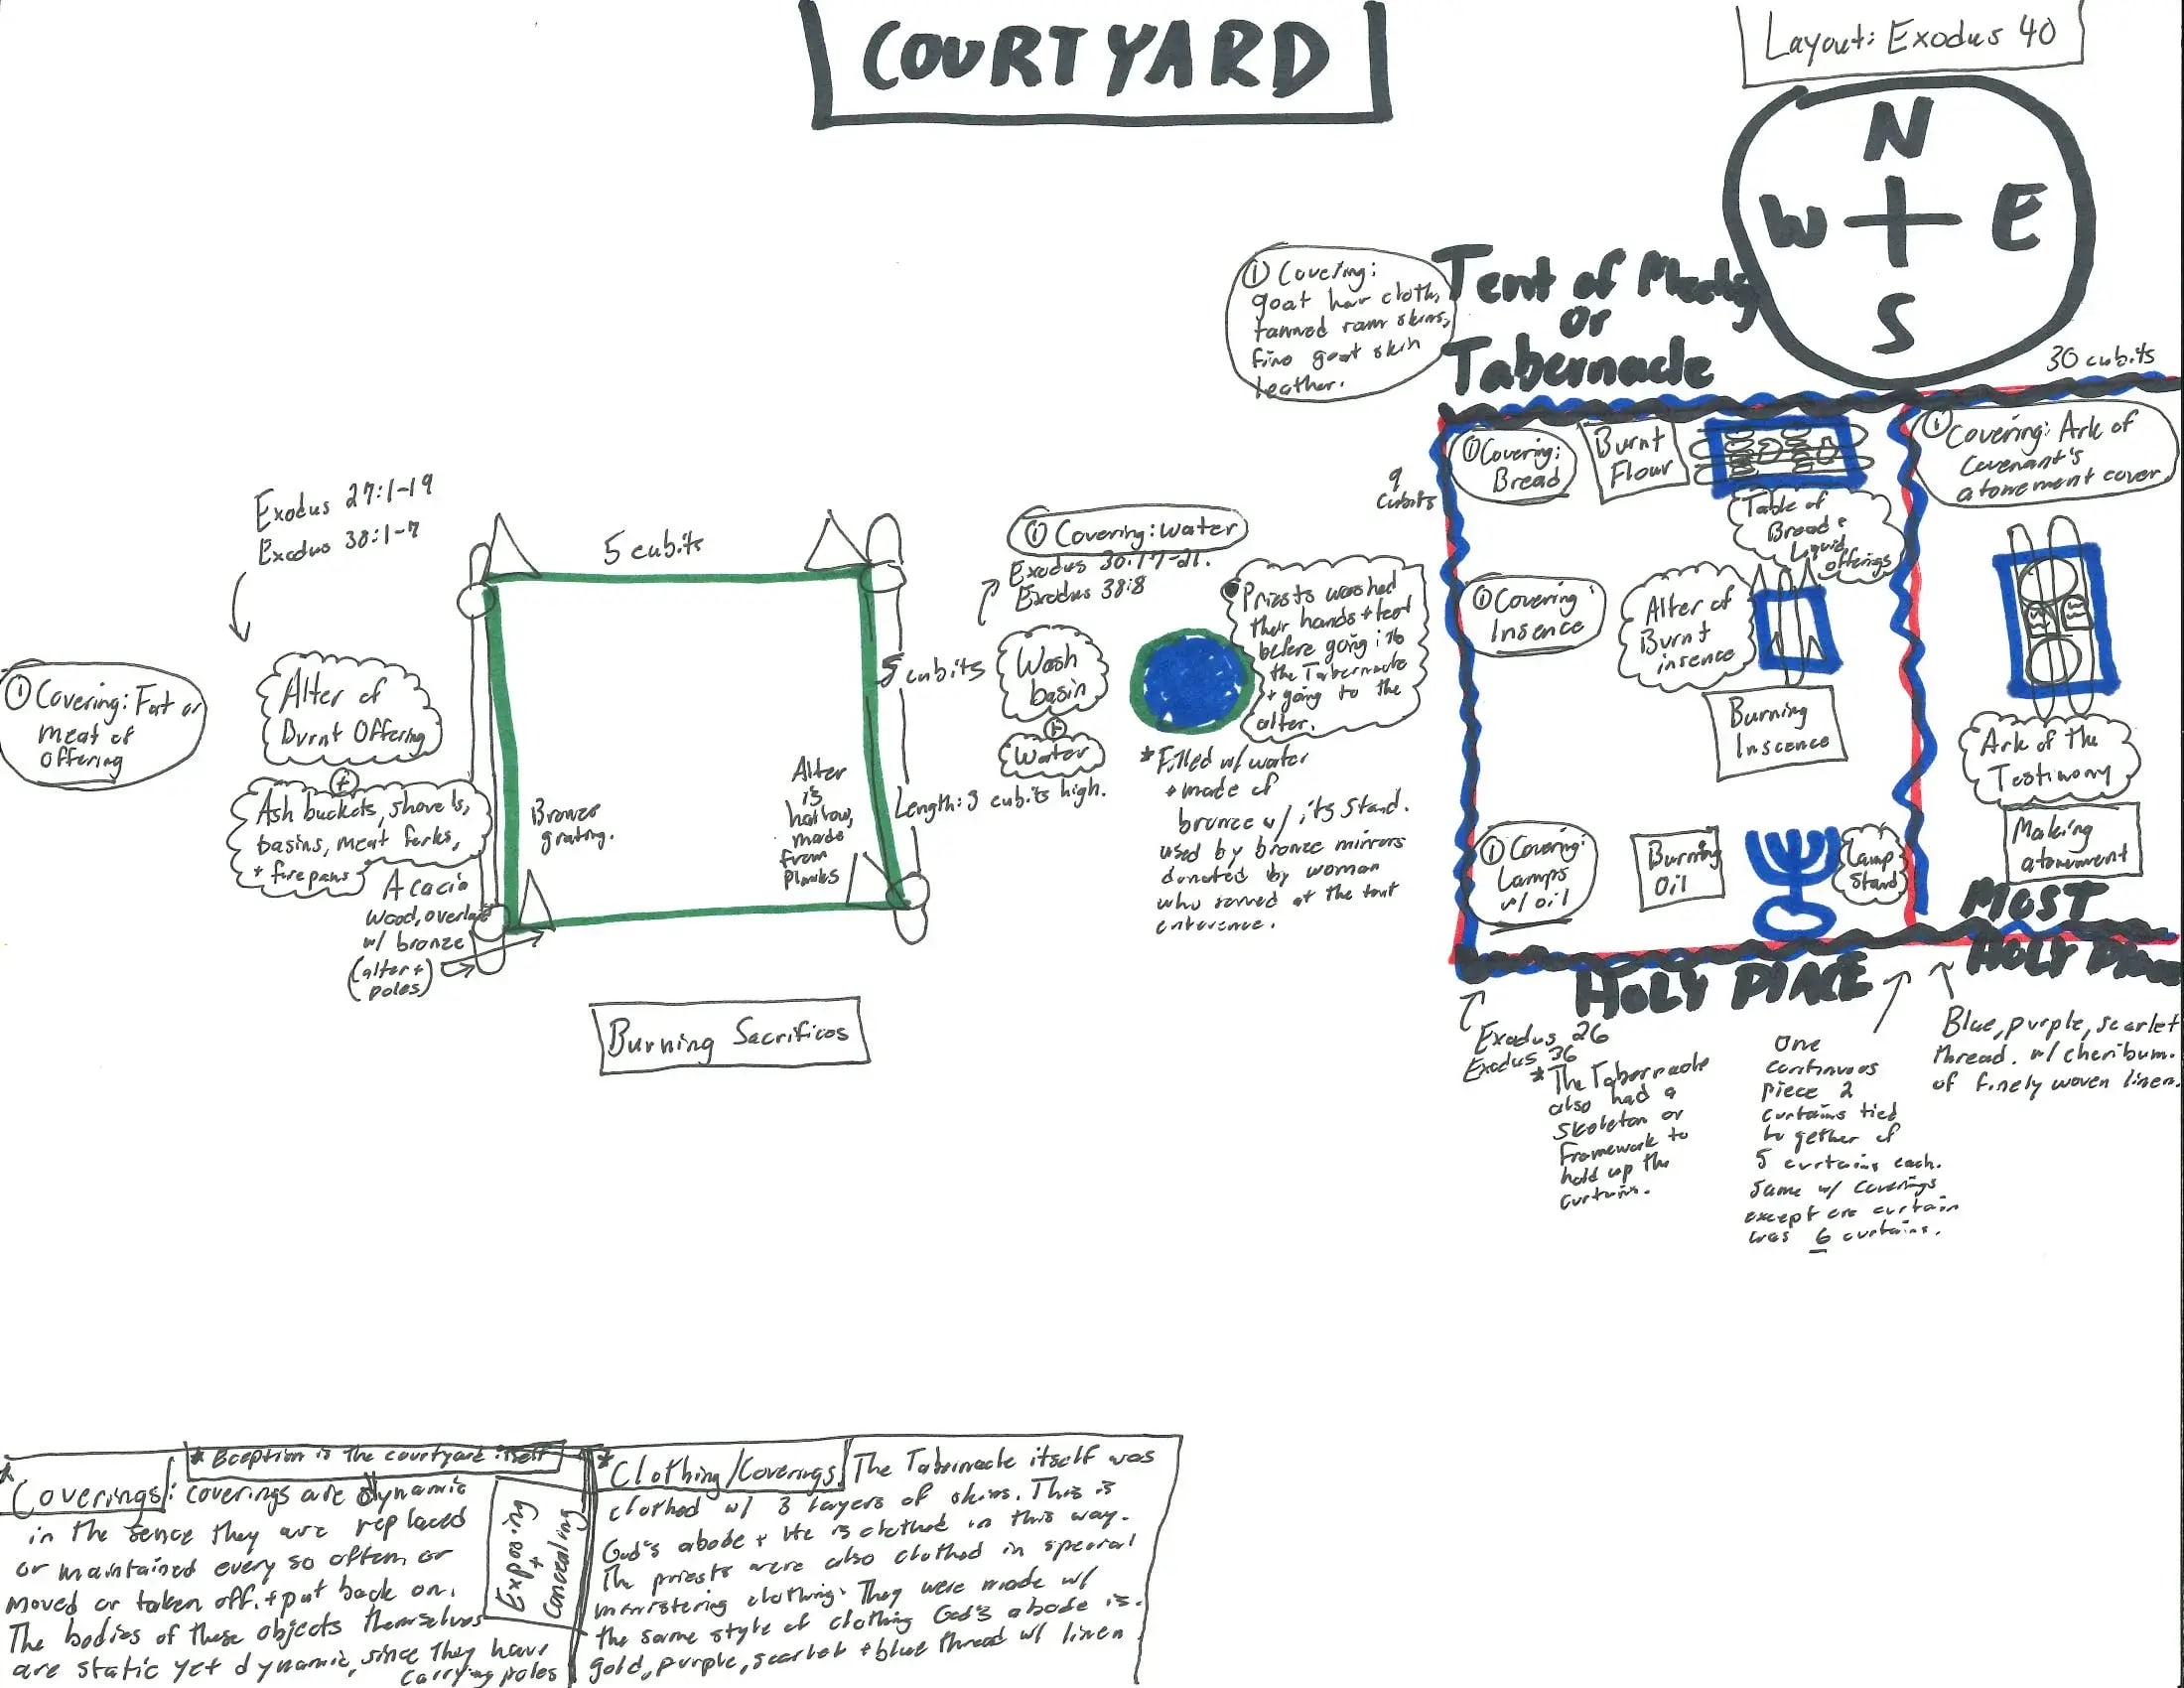 COURTYARD
Layout: Exodus 40
N
W E
S
① Covering:
goat hair cloth,
tanned ram skins,
fine goat skin
leather.
Tent of Meeting
or
Tabernacle
30 cubits
9
cubits
① Covering:
Bread
Burnt
Flour
Table of
Bread &
Liquid
offerings
① Covering: Ark of
Covenant's
atonement cover
① Covering:
Insence
Alter of
Burnt
insence
Burning
Inscence
Ark of the
Testimony
Making
atonement
① Covering:
Lamps
w/ oil
Burning
Oil
Lamp
Stand
HOLY PLACE
MOST
HOLY PLACE
Exodus 27:1-19
Exodus 38:1-7
5 cubits
5 cubits
Length: 3 cubits high.
① Covering: Fat or
meat of
offering
Alter of
Burnt Offering
+
Ash buckets, shovels,
basins, meat forks,
+ fire pans
Acacia
wood, overlaid
w/ bronze
(alter +
poles)
Bronze
grating.
Alter
is
hollow,
made
from
planks
Burning Sacrifices
① Covering: Water
Exodus 30:17-21.
Exodus 38:8
Wash
basin
+
Water
Priests washed
their hands + feet
before going into
the Tabernacle
+ going to the
alter.
*Filled w/ water
+ made of
bronze w/ its stand.
used by bronze mirrors
donated by woman
who served at the tent
enterence.
Exodus 26
Exodus 36
*The Tabernacle
also had a
skeleton or
framework to
hold up the
curtains.
One
continuous
piece 2
curtains tied
together of
5 curtains each.
Same w/ coverings
except one curtain
was 6 curtains.
Blue, purple, scarlet
thread. w/ cheribum.
of finely woven linen.
* Eception is the courtyard itself
* Coverings: coverings are dynamic
in the sence they are replaced
or maintained every so often, or
moved or taken off. + put back on.
The bodies of these objects themselves
are static yet dynamic, since they have
carrying poles
Exposing
+
Concealing
* Clothing/Coverings The Tabernacle itself was
clothed w/ 3 layers of skins. This is
God's abode + He is clothed in this way.
The priests were also clothed in special
ministering clothing. They were made w/
the same style of clothing God's abode is.
gold, purple, scarlet + blue thread w/ linen